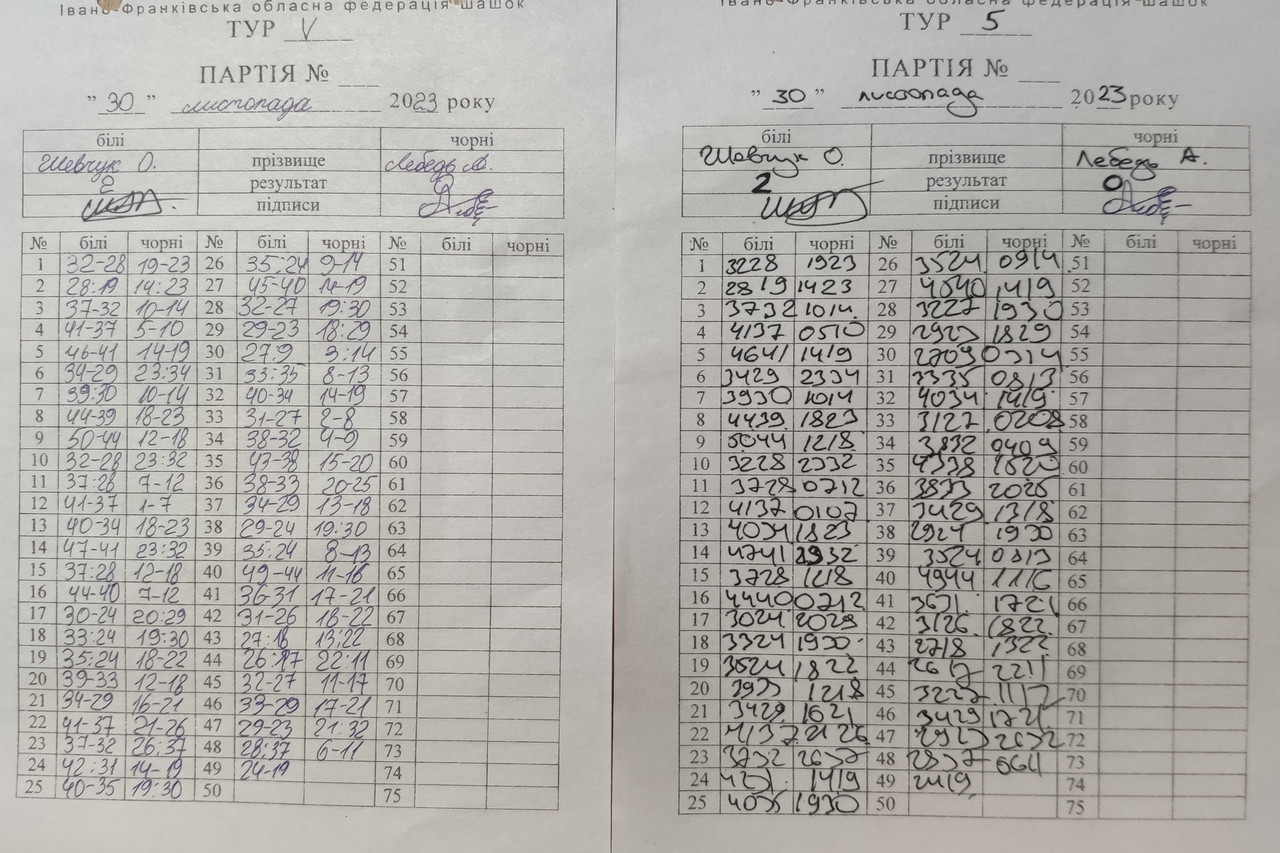 Івано-Франківська обласна федерація шашок
ТУР V
ПАРТІЯ № ___
" 30 " листопада 2023 року
білі чорні
Шевчук О. прізвище Лебедь А.
2 результат 0
підписи
№ білі чорні № білі чорні № білі чорні
1 32-28 19-23 26 35:24 9-14 51
2 28:19 14:23 27 45-40 14-19 52
3 37-32 10-14 28 32-27 19:30 53
4 41-37 5-10 29 29-23 18:29 54
5 46-41 14-19 30 27:9 3:14 55
6 34-29 23:34 31 33:35 8-13 56
7 39:30 10-14 32 40-34 14-19 57
8 44-39 18-23 33 31-27 2-8 58
9 50-44 12-18 34 38-32 4-9 59
10 32-28 23:32 35 43-38 15-20 60
11 37:28 7-12 36 38-33 20-25 61
12 41-37 1-7 37 34-29 13-18 62
13 40-34 18-23 38 29-24 19:30 63
14 47-41 23:32 39 35:24 8-13 64
15 37:28 12-18 40 49-44 11-16 65
16 44-40 7-12 41 36-31 17-21 66
17 30-24 20:29 42 31-26 18-22 67
18 33:24 19:30 43 27:18 13:22 68
19 35:24 18-22 44 26:17 22:11 69
20 39-33 12-18 45 32-27 11-17 70
21 34-29 16-21 46 33-29 17-21 71
22 41-37 21-26 47 29-23 21:32 72
23 37-32 26:37 48 28:37 6-11 73
24 42:31 14-19 49 24-19 74
25 40-35 19:30 50 75
Івано-Франківська обласна федерація шашок
ТУР 5
ПАРТІЯ № ___
" 30 " листопада 2023 року
білі чорні
Шевчук О. прізвище Лебедь А.
2 результат 0
підписи
№ білі чорні № білі чорні № білі чорні
1 3228 1923 26 3524 0914 51
2 2819 1423 27 4540 1419 52
3 3732 1014 28 3227 1930 53
4 4137 0510 29 2923 1829 54
5 4641 1419 30 2709 0314 55
6 3429 2334 31 3335 0813 56
7 3930 1014 32 4034 1419 57
8 4439 1823 33 3127 0208 58
9 5044 1218 34 3832 0409 59
10 3228 2332 35 4338 1520 60
11 3728 0712 36 3833 2025 61
12 4137 0107 37 3429 1318 62
13 4034 1823 38 2924 1930 63
14 4741 2332 39 3524 0813 64
15 3728 1218 40 4944 1116 65
16 4440 0712 41 3631 1721 66
17 3024 2029 42 3126 1822 67
18 3324 1930 43 2718 1322 68
19 3524 1822 44 2617 2211 69
20 3933 1218 45 3227 1117 70
21 3429 1621 46 3429 1721 71
22 4137 2126 47 2923 2632 72
23 3732 2637 48 2837 0611 73
24 4231 1419 49 2419 74
25 4035 1930 50 75